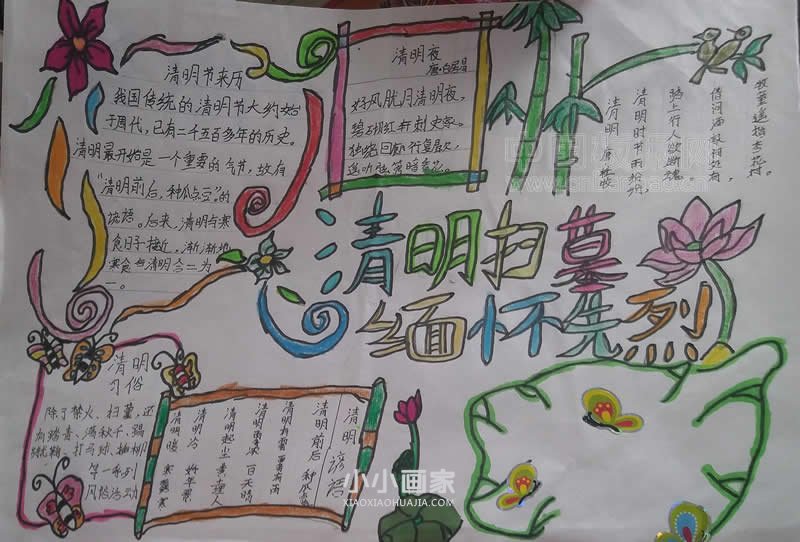 清明节来历
我国传统的清明节大约始
于周代，已有二千五百多年的历史。
清明最开始是一个重要的气节，故有
“清明前后，种瓜点豆”的
谚语。后来，清明与寒
食日子接近，渐渐地
寒食与清明合二为
一。
清明夜
唐·白居易
好风胧月清明夜，
碧砌红轩刺史家。
独绕回廊行复歇，
遥听弦管暗看花。
清明 唐 杜牧
清明时节雨纷纷，
路上行人欲断魂。
借问酒家何处有，
牧童遥指杏花村。
清明扫墓
缅怀先烈
清明
习俗
除了禁火、扫墓，还
有踏青、荡秋千、蹴
鞠、打马球、插柳
等一系列
风俗活动
清明谚语
清明前后 种
清明起尘 黄土埋人
清明冷 好年景
清明暖 寒露寒
小小画家
XIAOXIAOHUAJIA.COM